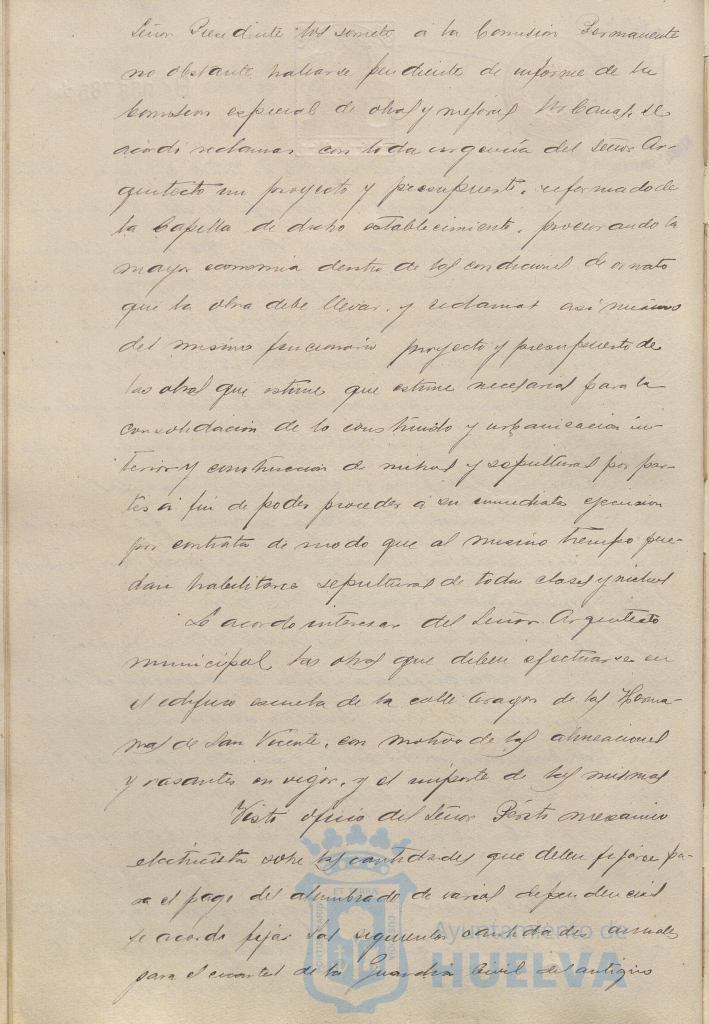 Señor Presidente los somete á la Comisión Permanente
no obstante hallarse pendiente de informe de la
Comision especial de obras y mejoras urbanas, se
acordó reclamar con toda urgencia del Señor Ar-
quitecto un proyecto y presupuesto, reformado de
la Capilla de dicho establecimiento, procurando la
mayor economia dentro de las condiciones de ornato
que la obra debe llevar, y reclamar asi mismo
del mismo funcionario proyecto y presupuesto de
las obras que estime que estime necesarias para la
consolidación de lo construido y urbanizacion in-
terior y construccion de nichos y sepulturas por par-
tes á fin de poder proceder á su inmediata ejecucion
por contrata de modo que al mismo tiempo pue-
dan habilitarse sepulturas de todas clases y nichos
Se acordó interesar del Señor Arquitecto
municipal las obras que deben efectuarse en
el edificio escuela de la calle Aragon de las Herma-
nas de San Vicente, con motivo de las alineaciones
y rasantes en vigor, y el importe de las mismas
Visto oficio del Señor Périto mecanico
electricista sobre las cantidades que deben fijarse pa-
ra el pago del alumbrado de varias dependencias
se acordó fijar las siguientes cantidades anuales
para el cuartel de la Guardia Civil del antiguo
Ayuntamiento de
HUELVA